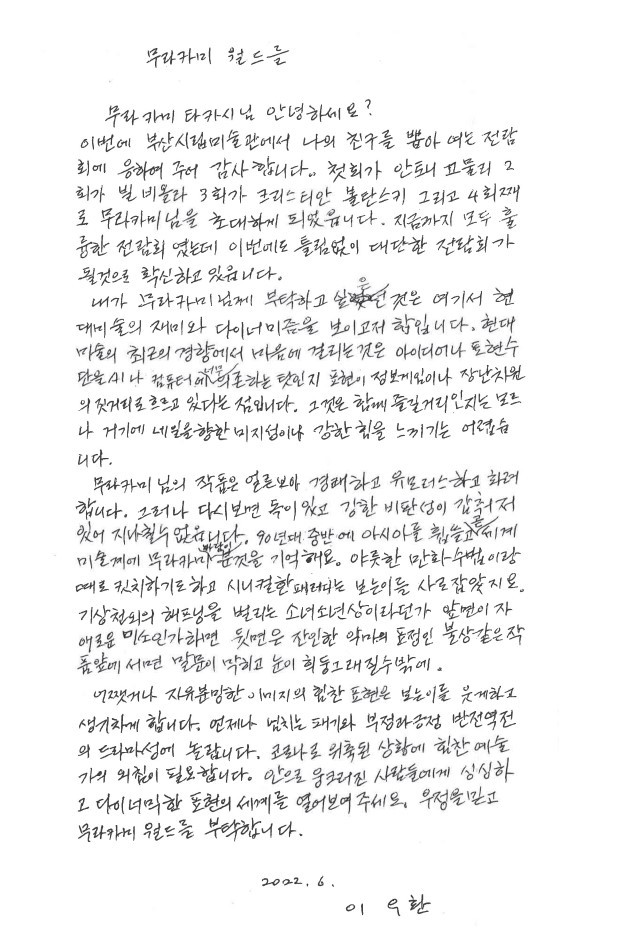 무라카미 월드를
무라카미 타카시님 안녕하세요?
이번에 부산시립미술관에서 나의 친구를 뽑아 여는 전람
회에 응하여 주어 감사합니다. 첫회가 안토니 고믈리 2
회가 빌 비올라 3회가 크리스티안 볼탄스키 그리고 4회째
로 무라카미님을 초대하게 되었읍니다. 지금까지 모두 훌
륭한 전람회였는데 이번에도 틀림없이 대단한 전람회가
될것으로 확신하고 있읍니다.
내가 무라카미님께 부탁하고 싶은 것은 여기서 현
대미술의 재미와 다이너미즘을 보이고저 함입니다. 현대
미술의 최근의 경향에서 마음에 걸리는것은 아이디어나 표현수
단을 AI나 컴퓨터에 너무 의존하는 탓인지 표현이 정보게임이나 장난차원
의 짓거리로 흐르고 있다는 점입니다. 그것은 함께 즐길거리인지는 모르
나 거기에 내일을향한 미지성이나 강한 힘을 느끼기는 어렵습
니다.
무라카미 님의 작품은 얼른보아 경쾌하고 유모러스하고 화려
합니다. 그러나 다시보면 독이있고 강한 비판성이 감춰져
있어 지나칠수 없읍니다. 90년대 중반에 아시아를 휩쓸고 세계
미술계에 무라카미 바람이 분것을 기억해요. 야릇한 만화수법이랑
때로 킷치하기도하고 시니컬한 패러디는 보는이들 사로잡았지요.
기상천외의 해프닝을 벌리는 소녀소년상이라던가 앞면이 자
애로운 미소인가하면 뒷면은 잔인한 악마의 표정인 불상같은 작
품앞에 서면 말문이 막히고 눈이 휘둥그래질수밖에.
어쨌거나 자유분망한 이미지의 힘찬 표현은 보는이를 웃게하고
생기하게 합니다. 언제나 넘치는 패기와 부정과긍정 반전역전
의 드라마성에 놀랍니다. 코로나로 위축된 상황에 힘찬 예술
가의 외침이 필요합니다. 안으로 웅크러진 사람들에게 싱싱하
고 다이너믹한 표현의 세계를 열어보여 주세요. 우정을 믿고
무라카미 월드를 부탁합니다.
2022. 6.
이 우환